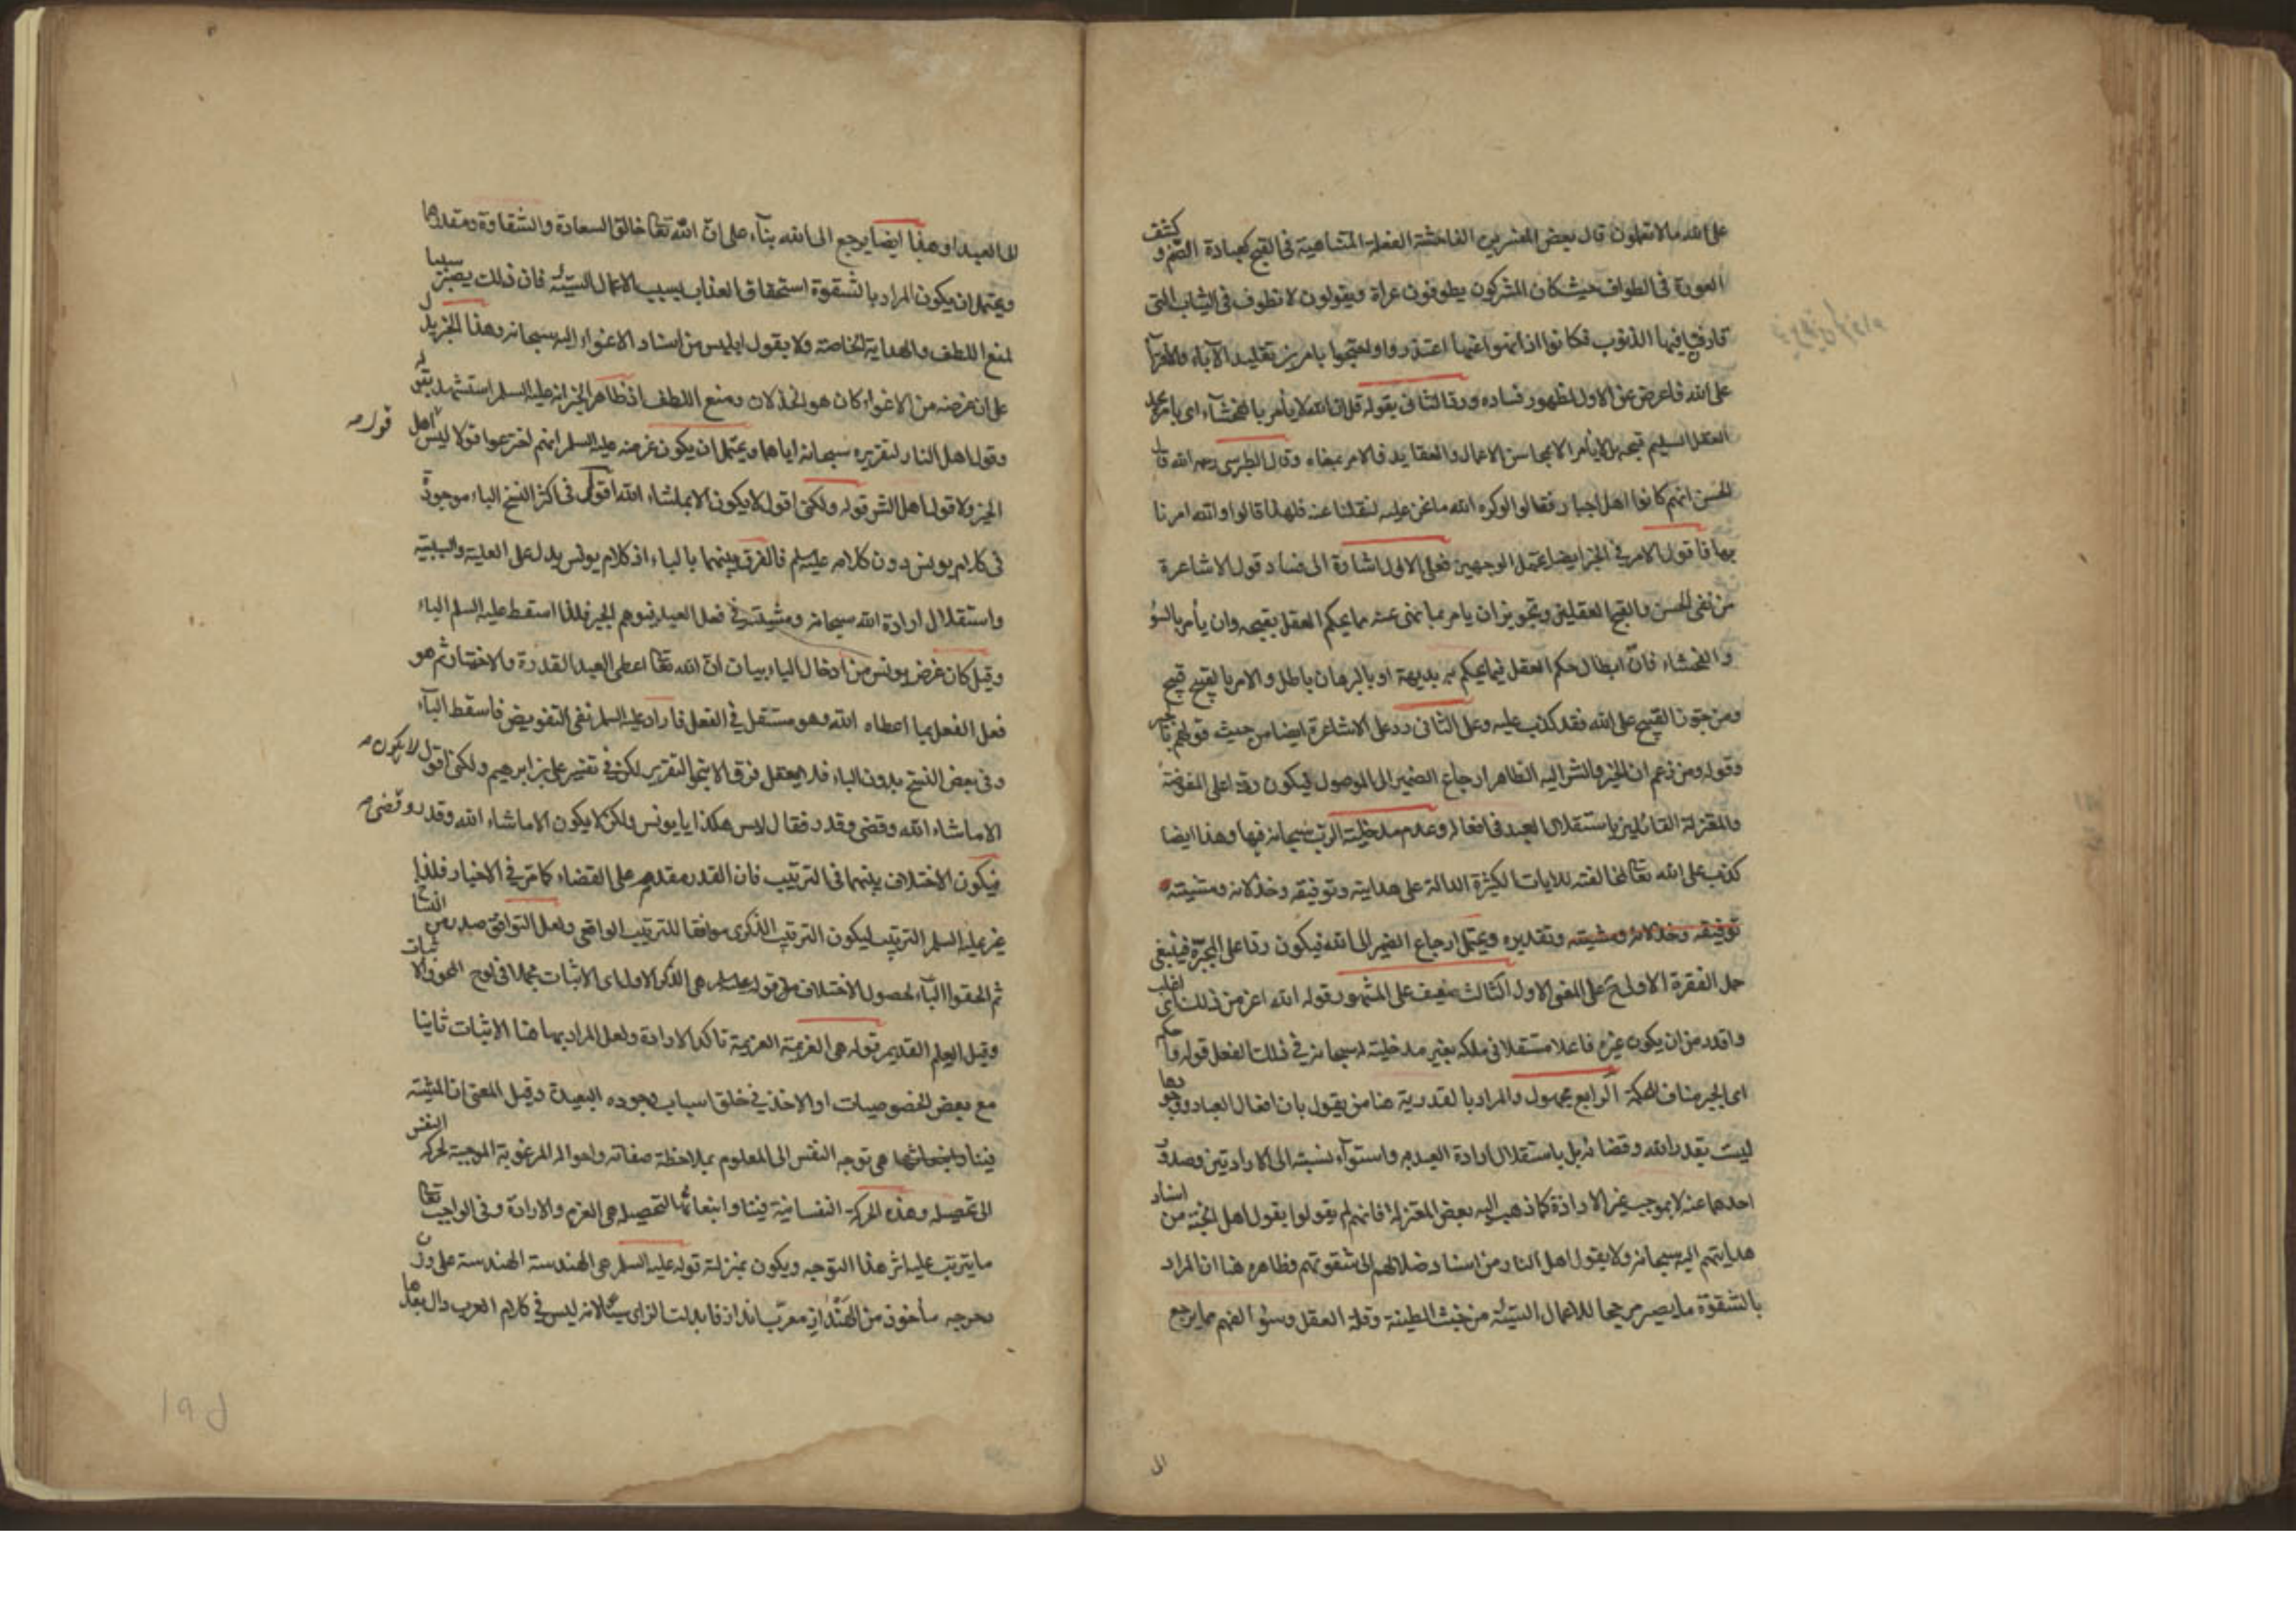 على الله ما لا تعلمون قال بعض المفسرين الفاحشة الفعلة المتناهية في القبح كعبادة الصنم و كشف
العورة في الطواف حيث كان المشركون يطوفون عراة ويقولون لا نطوف في الثياب التي
قارفنا فيها الذنوب فكانوا اذا نهوا عنها اعتذروا واحتجوا بامرين تقليد الآباء والافتراء
على الله فاعرض عن الاول لظهور فساده ورد الثاني بقوله قل ان الله لا يأمر بالفحشاء اى بما يجد
العقل السليم قبحه بل لا يأمر الا بمحاسن الاعمال والعقايد فالامر بمعناه وقال الطبرسي رحمه الله قال
الحسن انهم كانوا اهل اجبار فقالوا لو كره الله ما نحن عليه لنقلنا عنه فلهذا قالوا والله امرنا
بها فاقول الامر في الخبر ايضا يحتمل الوجهين فعلى الاول اشارة الى فساد قول الاشاعرة
من نفى الحسن والقبح العقليين وتجويز ان يامر بما نهى عنه مما يحكم العقل بقبحه وان يأمر بالسوء
والفحشاء فان ابطال حكم العقل فيما يحكم به بديهة او بالبرهان باطل والامر بالقبيح قبيح
ومن جوز القبيح على الله فقد كذب عليه وعلى الثاني رد على الاشاعرة ايضا من حيث قولهم بالجبر
وقوله ومن زعم ان الخير والشر اليه الظاهر ارجاع الضمير الى الموصول ليكون ردا على المفوضة
والمعتزلة القائلين باستقلال العبد في افعاله وعدم مدخلية الرب سبحانه فيها وهذا ايضا
كذب على الله تعالى لمخالفته للايات الكثيرة الدالة على هدايته وتوفيقه وخذلانه ومشيته
توفيقه وخذلانه ومشيته وتقديره ويحتمل ارجاع الضمير الى الله فيكون ردا على المجبرة فينبغي
حمل الفقرة الاولى على المعنى الاول الثالث ضعيف على المشهور قوله الله اعز من ذلك اى اغلب
واقدر من ان يكون غيره فاعلا مستقلا في ملكه بغير مدخليته سبحانه في ذلك الفعل قوله واحكم
اى الجبر مناف للحكمة الرابع مجهول والمراد بالقدرية هنا من يقول بان افعال العباد ووجودها
ليست بقدر الله وقضائه بل باستقلال ارادة العبد به واستواء نسبته الى الارادتين وصدور
احدهما عنه لا بموجب غير الارادة كما ذهب اليه بعض المعتزلة فانهم لم يقولوا بقول اهل الجنة من اسناد
هدايتهم اليه سبحانه ولا بقول اهل النار من اسناد ضلالتهم الى شقوتهم وظاهره هنا ان المراد
بالشقوة ما يصير مرجحا للاعمال السيئة من خبث الطينة وقلة العقل وسوء الفهم مما يرجع
الى
الى العبد او هذا ايضا يرجع الى الله بناء على ان الله تعالى خالق السعادة والشقاوة ومقدرها
ويحتمل ان يكون المراد بالشقوة استحقاق العذاب بسبب الاعمال السيئة فان ذلك يصير سببا
لمنع اللطف والهداية الخاصة ولا بقول ابليس من اسناد الاغواء اليه سبحانه وهذا الخبر يدل
على ان غرضه من الاغواء كان هو الخذلان ومنع اللطف اذ ظاهر الخبر انه عليه السلم استشهد بقوله
وقول اهل النار لتقريره سبحانه اياهما ويحتمل ان يكون غرضه عليه السلم انهم اخترعوا قولا ليس قول اهل
الخير ولا قول اهل الشر قوله ولكني اقول لا يكون الا بما شاء الله اقول في اكثر النسخ الباء موجودة
في كلام يونس دون كلامه عليه السلم فالفرق بينهما بالباء اذ كلام يونس يدل على العلية والسببية
واستقلال ارادة الله سبحانه ومشيته في فعل العبد فيوهم الجبر فلذا اسقط عليه السلم الباء
وقيل كان غرض يونس من ادخال الباء بيان ان الله تعالى اعطى العبد القدرة والاختيار ثم هو
فعل الفعل بما اعطاه الله وهو مستقل في الفعل فاراد عليه السلم نفى التفويض فاسقط الباء
وفي بعض النسخ بدون الباء فلا يعقل فرق الا بنحو التقرير لكن في تفسير علي بن ابرهيم ولكني اقول لا يكون
الا ما شاء الله وقضى وقدر فقال ليس هكذا يا يونس ولكن لا يكون الا ما شاء الله وقدر وقضى
فيكون الاختلاف بينهما في الترتيب فان القدر مقدم على القضاء كما مر في الاخبار فلذا
غير عليه السلم الترتيب ليكون الترتيب الذكرى موافقا للترتيب الواقعى ولعل التوافق صدر من النساخ
ثم الحقوا الباء لحصول الاختلاف قوله عليه السلم هى الذكر الاول اى الاثبات مجملا في لوح المحو والاثبات
وقيل العلم القديم قوله هى العزيمة العزيمة تاكد الارادة ولعل المراد بها هنا الاثبات ثانيا
مع بعض الخصوصيات او الاخذ في خلق اسباب وجوده البعيدة وقيل المعنى ان المشية
فينا هى توجه النفس الى المعلوم بملاحظة صفاته واحواله المرغوبة الموجبة لحركة النفس
الى تحصيله وهذه الحركة النفسانية فينا وانبعاثها لتحصيله هى العزم والارادة وفي الواجب تعالى
ما يترتب عليه اثر هذا التوجه ويكون بمنزلته قوله عليه السلم هى الهندسة الهندسة على وزن
دحرجه مأخوذ من الهنداز معرب انداز فابدلت الزاى سينا لانه ليس في كلام العرب دال بعدها